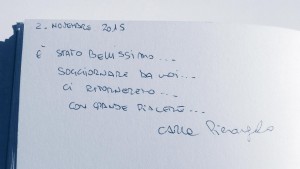 2. NOVEMBRE 2015
È STATO BELLISSIMO...
SOGGIORNARE DA VOI...
CI RITORNEREMO...
CON GRANDE PIACERE...
CARLA